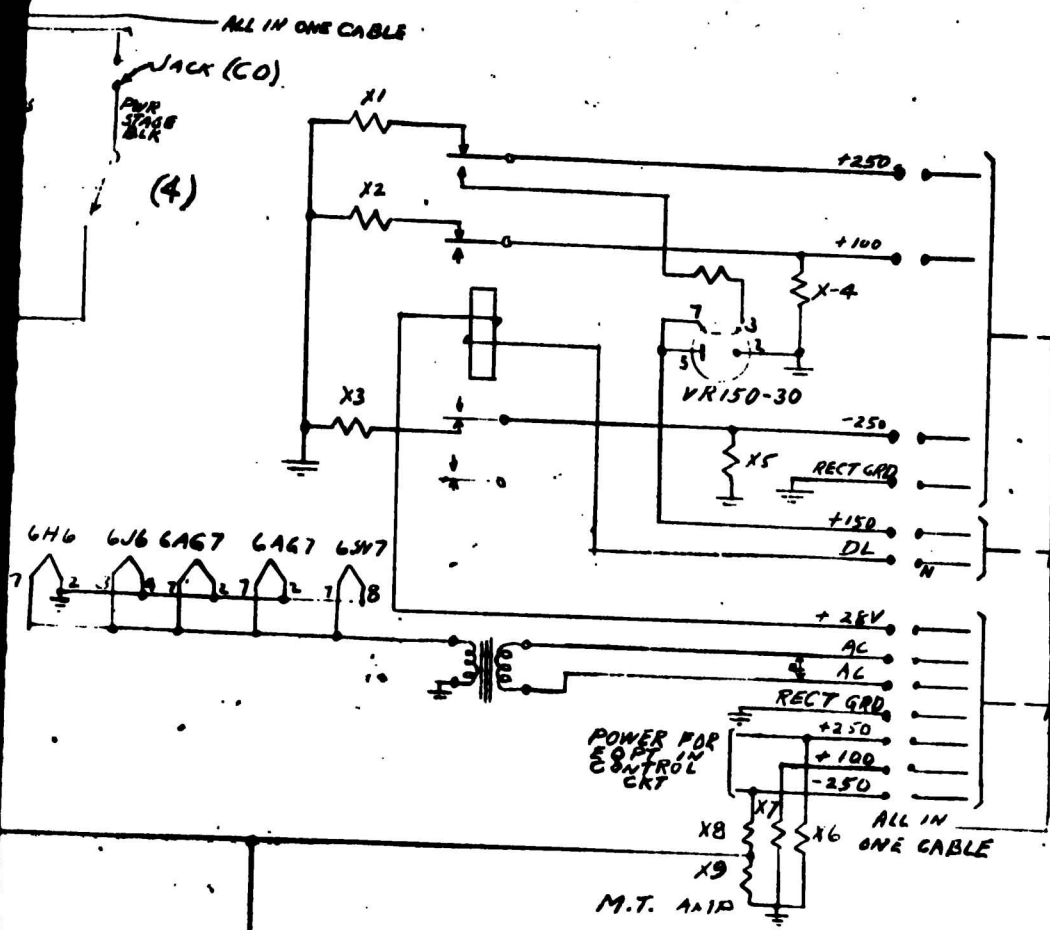 ALL IN ONE CABLE
JACK (CO)
PWR
STAGE
BLK
(4)
X1
+250
X2
+100
X-4
7
3
5
2
VR150-30
X3
-250
X5
RECT GRD
+150
DL
N
6H6 6J6 6AG7 6AG7 6SN7
7 2 3 4 7 2 7 2 7 8
+28V
AC
AC
RECT GRD
+250
POWER FOR
EQPT IN
CONTROL
CKT
+100
-250
X7
X8
X6
ALL IN
ONE CABLE
X9
M.T. AMP